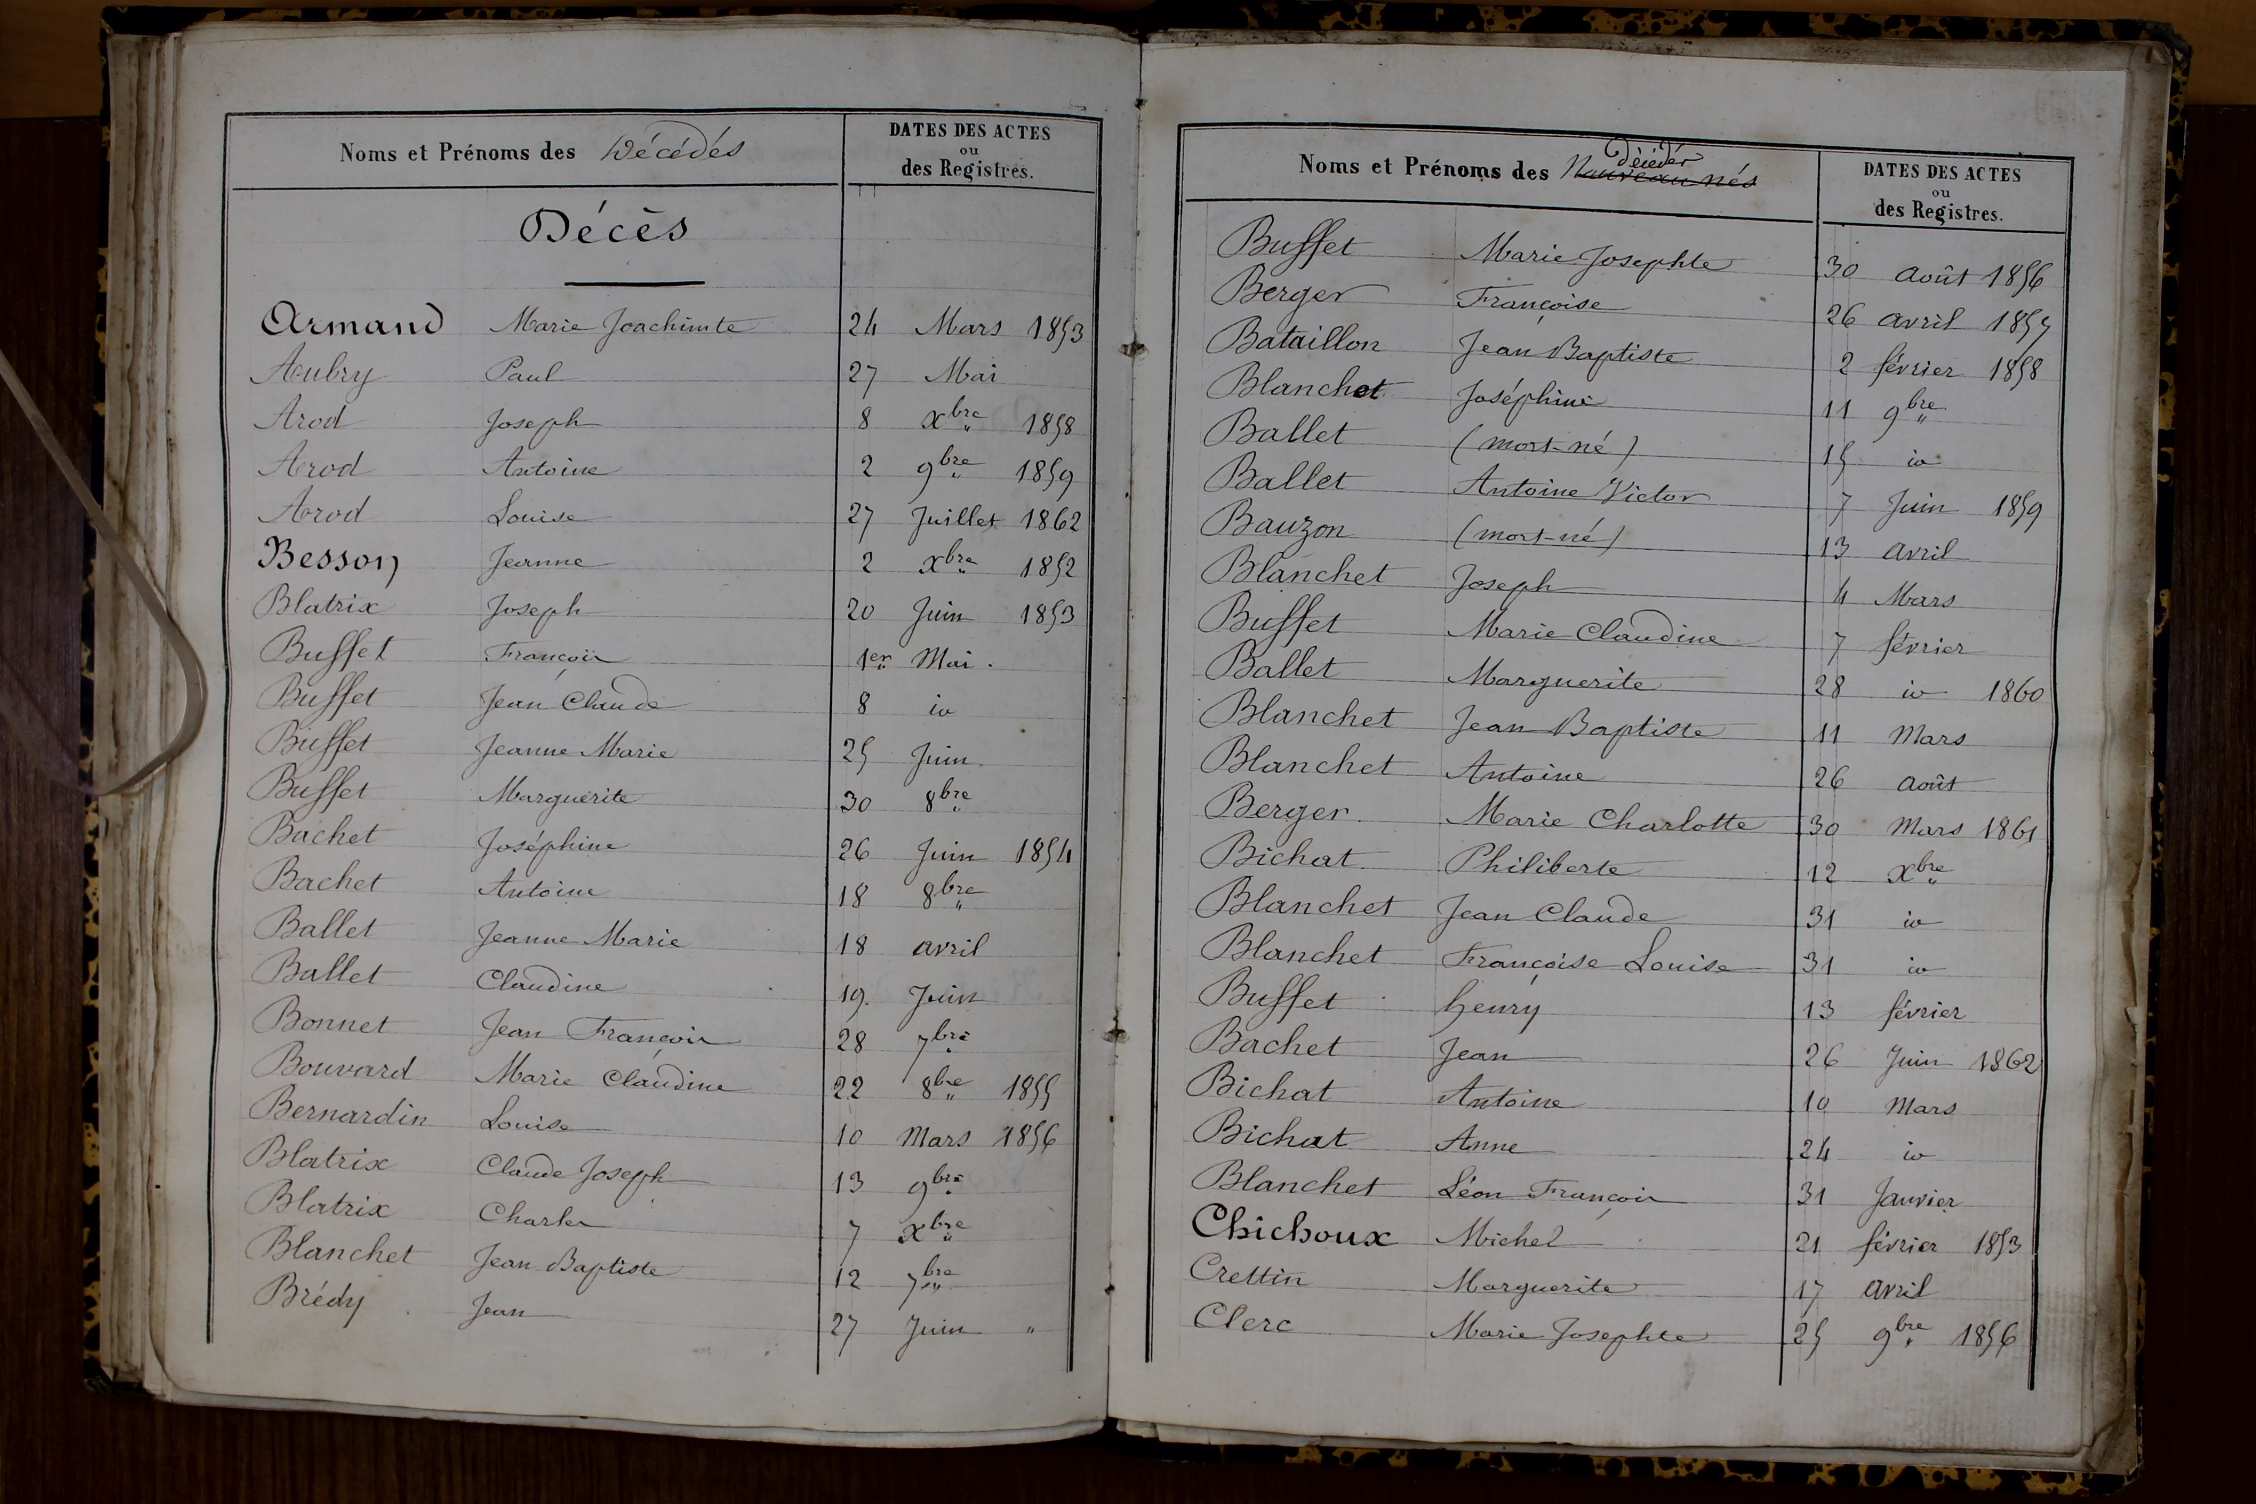 Noms et Prénoms des Décédés DATES DES ACTES
ou
des Registres.
Décès
Armand Marie Joachimte 24 Mars 1853
Aubry Paul 27 Mai
Arod Joseph 8 xbre 1858
Arod Antoine 2 9bre 1859
Arod Louise 27 Juillet 1862
Besson Jeanne 2 xbre 1852
Blatrix Joseph 20 Juin 1853
Buffet François 1er Mai
Buffet Jean Claude 8 id
Buffet Jeanne Marie 25 Juin
Buffet Marguerite 30 8bre
Bachet Joséphine 26 Juin 1854
Bachet Antoine 18 8bre
Ballet Jeanne Marie 18 avril
Ballet Claudine 19 Juin
Bonnet Jean François 28 7bre
Bouvard Marie Claudine 22 8bre 1855
Bernardin Louise 10 Mars 1856
Blatrix Claude Joseph 13 9bre
Blatrix Charles 7 xbre
Blanchet Jean Baptiste 12 7bre
Brédy Jean 27 Juin "
Noms et Prénoms des Nouveau nés décédés DATES DES ACTES
ou
des Registres.
Buffet Marie Josephte 30 août 1856
Berger Françoise 26 avril 1857
Bataillon Jean Baptiste 2 février 1858
Blanchet Joséphine 11 9bre
Ballet (mort-né) 15 id
Ballet Antoine Victor 7 Juin 1859
Bauzon (mort-né) 13 avril
Blanchet Joseph 4 Mars
Buffet Marie Claudine 7 février
Ballet Marguerite 28 id 1860
Blanchet Jean Baptiste 11 Mars
Blanchet Antoine 26 août
Berger Marie Charlotte 30 Mars 1861
Bichat Philiberte 12 xbre
Blanchet Jean Claude 31 id
Blanchet Françoise Louise 31 id
Buffet henry 13 février
Bachet Jean 26 Juin 1862
Bichat Antoine 10 Mars
Bichat Anne 24 id
Blanchet Léon François 31 Janvier
Chichoux Michel 21 février 1853
Crettin Marguerite 17 avril
Clerc Marie Josephte 25 9bre 1856